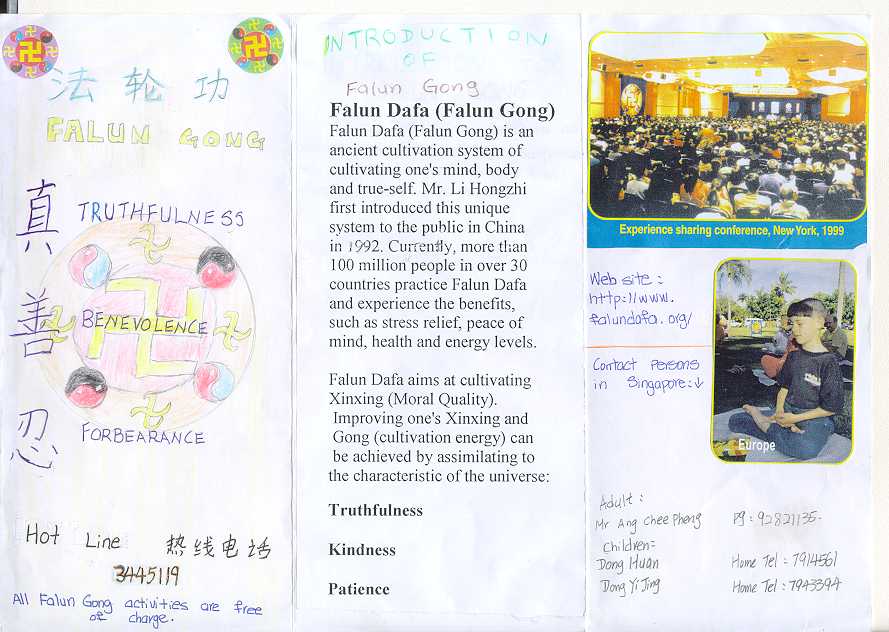 法轮功
FALUN GONG
真
善
忍
TRUTHFULNESS
BENEVOLENCE
FORBEARANCE
Hot Line 热线电话
3445119
All Falun Gong activities are free
of charge.
INTRODUCTION
OF
Falun Gong
Falun Dafa (Falun Gong)
Falun Dafa (Falun Gong) is an
ancient cultivation system of
cultivating one's mind, body
and true-self. Mr. Li Hongzhi
first introduced this unique
system to the public in China
in 1992. Currently, more than
100 million people in over 30
countries practice Falun Dafa
and experience the benefits,
such as stress relief, peace of
mind, health and energy levels.
Falun Dafa aims at cultivating
Xinxing (Moral Quality).
Improving one's Xinxing and
Gong (cultivation energy) can
be achieved by assimilating to
the characteristic of the universe:
Truthfulness
Kindness
Patience
Experience sharing conference, New York, 1999
Web site :
http://www.
falundafa.org/
Contact Persons
in Singapore:↓
Europe
Adult :
Mr Ang Chee Pheng Pg : 92821135
Children:
Dong Huan Home Tel : 7914561
Dong Yi Jing Home Tel : 7943394